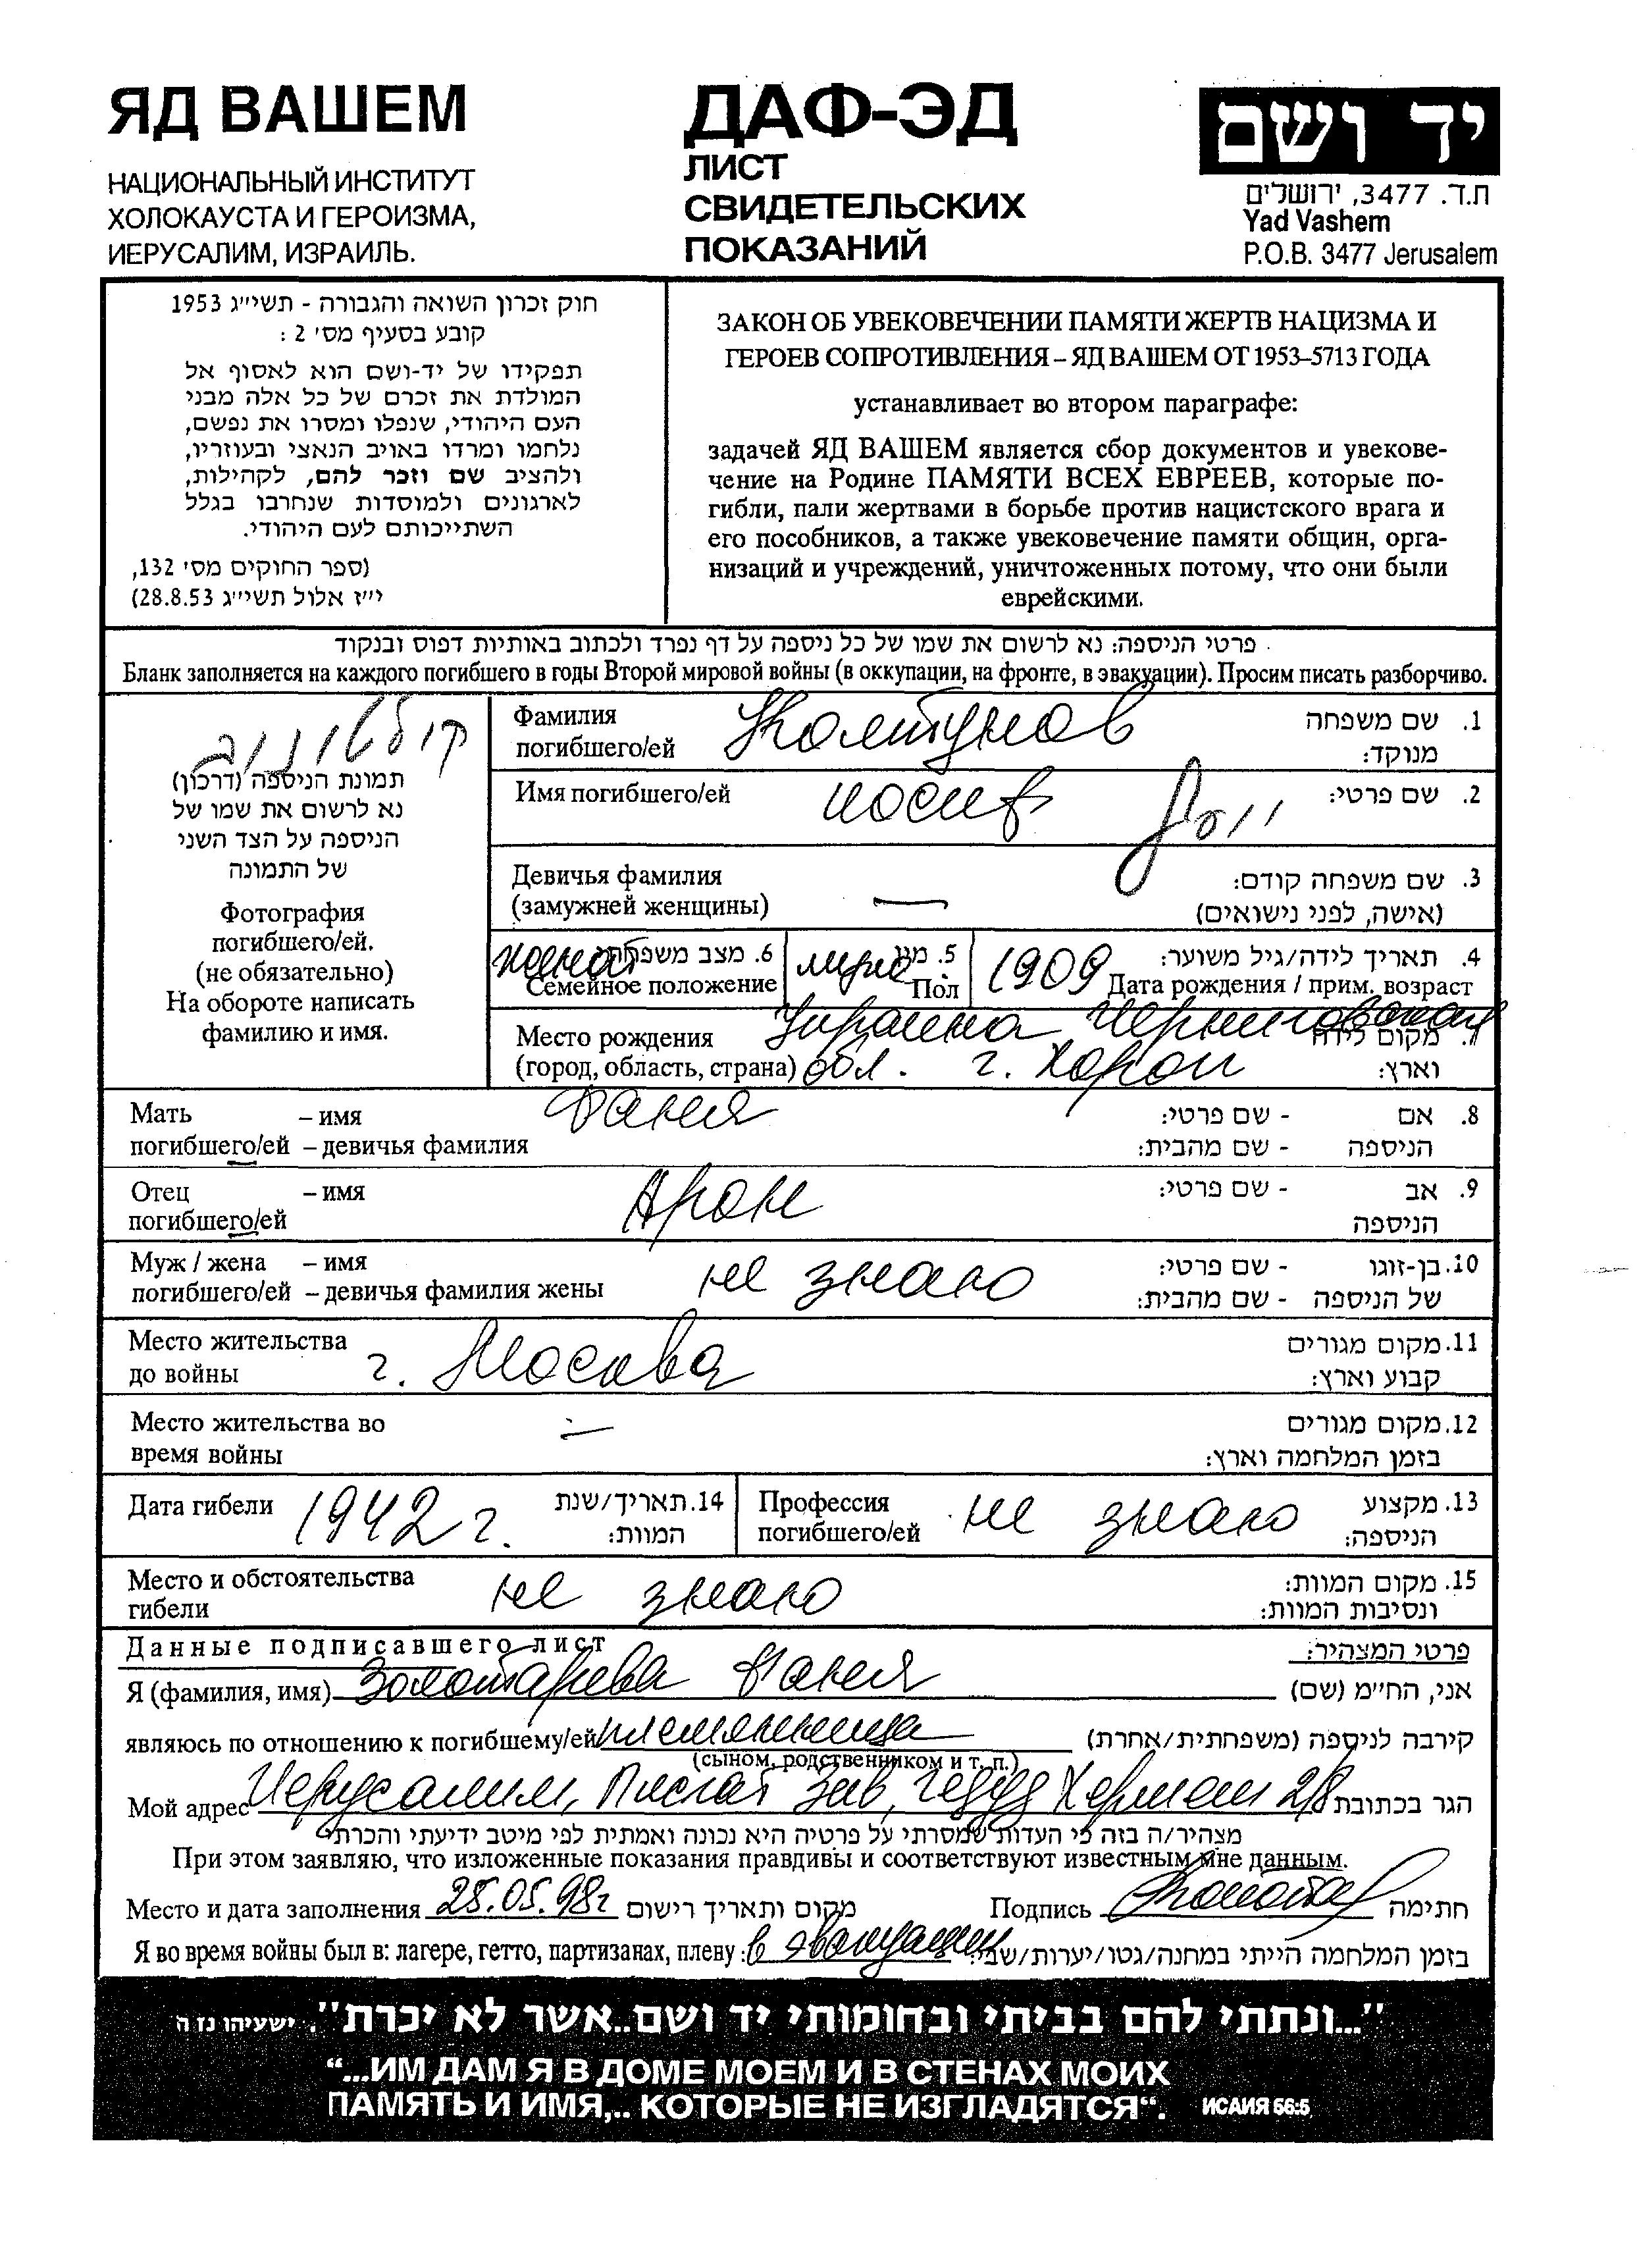 ЯД ВАШЕМ
НАЦИОНАЛЬНЫЙ ИНСТИТУТ
ХОЛОКАУСТА И ГЕРОИЗМА,
ИЕРУСАЛИМ, ИЗРАИЛЬ.
ДАФ-ЭД
ЛИСТ
СВИДЕТЕЛЬСКИХ
ПОКАЗАНИЙ
יד ושם
ת.ד. 3477, ירושלים
Yad Vashem
P.O.B. 3477 Jerusalem
חוק זכרון השואה והגבורה - תשי״ג 1953
קובע בסעיף מס׳ 2 :
תפקידו של יד-ושם הוא לאסוף אל
המולדת את זכרם של כל אלה מבני
העם היהודי, שנפלו ומסרו את נפשם,
נלחמו ומרדו באויב הנאצי ובעוזריו,
ולהציב שם וזכר להם, לקהילות,
לארגונים ולמוסדות שנחרבו בגלל
השתייכותם לעם היהודי.
(ספר החוקים מס׳ 132,
י״ז אלול תשי״ג 28.8.53)
ЗАКОН ОБ УВЕКОВЕЧЕНИИ ПАМЯТИ ЖЕРТВ НАЦИЗМА И
ГЕРОЕВ СОПРОТИВЛЕНИЯ – ЯД ВАШЕМ ОТ 1953–5713 ГОДА
устанавливает во втором параграфе:
задачей ЯД ВАШЕМ является сбор документов и увекове-
чение на Родине ПАМЯТИ ВСЕХ ЕВРЕЕВ, которые по-
гибли, пали жертвами в борьбе против нацистского врага и
его пособников, а также увековечение памяти общин, орга-
низаций и учреждений, уничтоженных потому, что они были
еврейскими.
פרטי הניספה: נא לרשום את שמו של כל ניספה על דף נפרד ולכתוב באותיות דפוס ובנקוד
Бланк заполняется на каждого погибшего в годы Второй мировой войны (в оккупации, на фронте, в эвакуации). Просим писать разборчиво.
קולטונוב
תמונת הניספה (דרכון)
נא לרשום את שמו של
הניספה על הצד השני
של התמונה
Фотография
погибшего/ей.
(не обязательно)
На обороте написать
фамилию и имя.
Фамилия Колтунов 1. שם משפחה
погибшего/ей מנוקד:
Имя погибшего/ей иосиф יוסף 2. שם פרטי:
Девичья фамилия 3. שם משפחה קודם:
(замужней женщины) — (אישה, לפני נישואים)
женат 6. מצב משפחתי мужс 5. מין 1909 4. תאריך לידה/גיל משוער:
Семейное положение Пол Дата рождения / прим. возраст
Место рождения Украина Черниговская 7. מקום לידה
(город, область, страна) обл. г. Хорол וארץ:
Мать – имя Фаня 8. אם - שם פרטי:
погибшего/ей – девичья фамилия הניספה - שם מהבית:
Отец – имя Арон 9. אב - שם פרטי:
погибшего/ей הניספה
Муж / жена – имя не знаю 10. בן-זוגו - שם פרטי:
погибшего/ей – девичья фамилия жены של הניספה - שם מהבית:
Место жительства 11. מקום מגורים
до войны г. Москва קבוע וארץ:
Место жительства во — 12. מקום מגורים
время войны בזמן המלחמה וארץ:
Дата гибели 1942 г. 14. תאריך/שנת Профессия не знаю 13. מקצוע
המוות: погибшего/ей הניספה:
Место и обстоятельства не знаю 15. מקום המוות:
гибели ונסיבות המוות:
Данные подписавшего лист פרטי המצהיר:
Я (фамилия, имя) Золотарева Фаня אני, החי״מ (שם)
являюсь по отношению к погибшему/ей племянница קירבה לניספה (משפחתית/אחרת)
(сыном, родственником и т. п.)
Мой адрес Иерусалим, Писгат Зив, Гедуд Хермеш 2/8 הגר בכתובת
מצהיר/ה בזה כי העדות שמסרתי על פרטיה היא נכונה ואמתית לפי מיטב ידיעתי והכרתי
При этом заявляю, что изложенные показания правдивы и соответствуют известным мне данным.
Место и дата заполнения 25.05.98г מקום ותאריך רישום Подпись חתימה
Я во время войны был в: лагере, гетто, партизанах, плену: в эвакуации בזמן המלחמה הייתי במחנה/גטו/יערות/שבי:
"...ונתתי להם בביתי ובחומותי יד ושם..אשר לא יכרת". ישעיהו נו ה
“...ИМ ДАМ Я В ДОМЕ МОЕМ И В СТЕНАХ МОИХ
ПАМЯТЬ И ИМЯ,.. КОТОРЫЕ НЕ ИЗГЛАДЯТСЯ“. ИСАИЯ 56:5